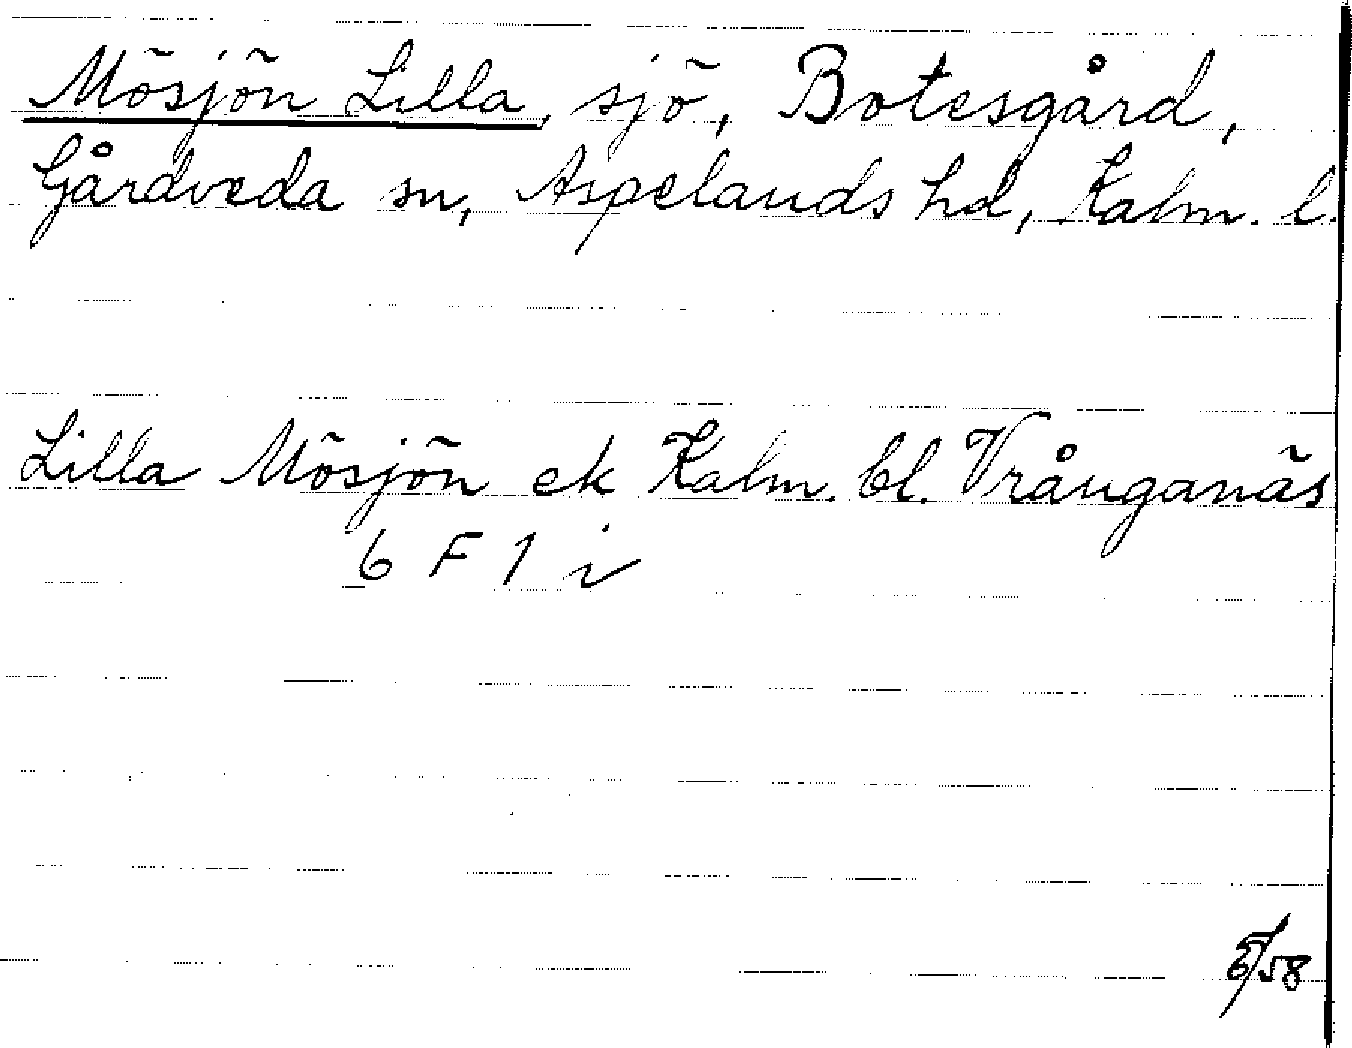 Mösjön Lilla, sjö, Botesgård,
Gårdveda sn, Aspelands hd, Kalm. l.
Lilla Mösjön ek Kalm. bl. Vrånganäs
6 F 1 i